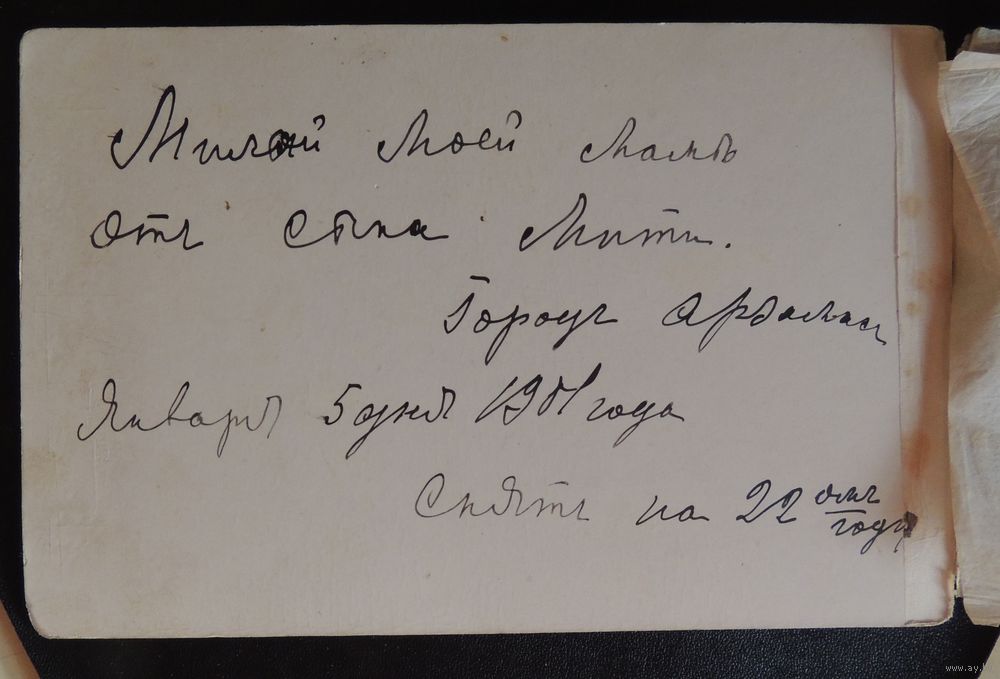 Милой Моей Мамѣ
отъ сына Мити.
Городъ Ардаганъ
Января 5 дня 1901 года
Снятъ на 22 омъ
году
www.ay.